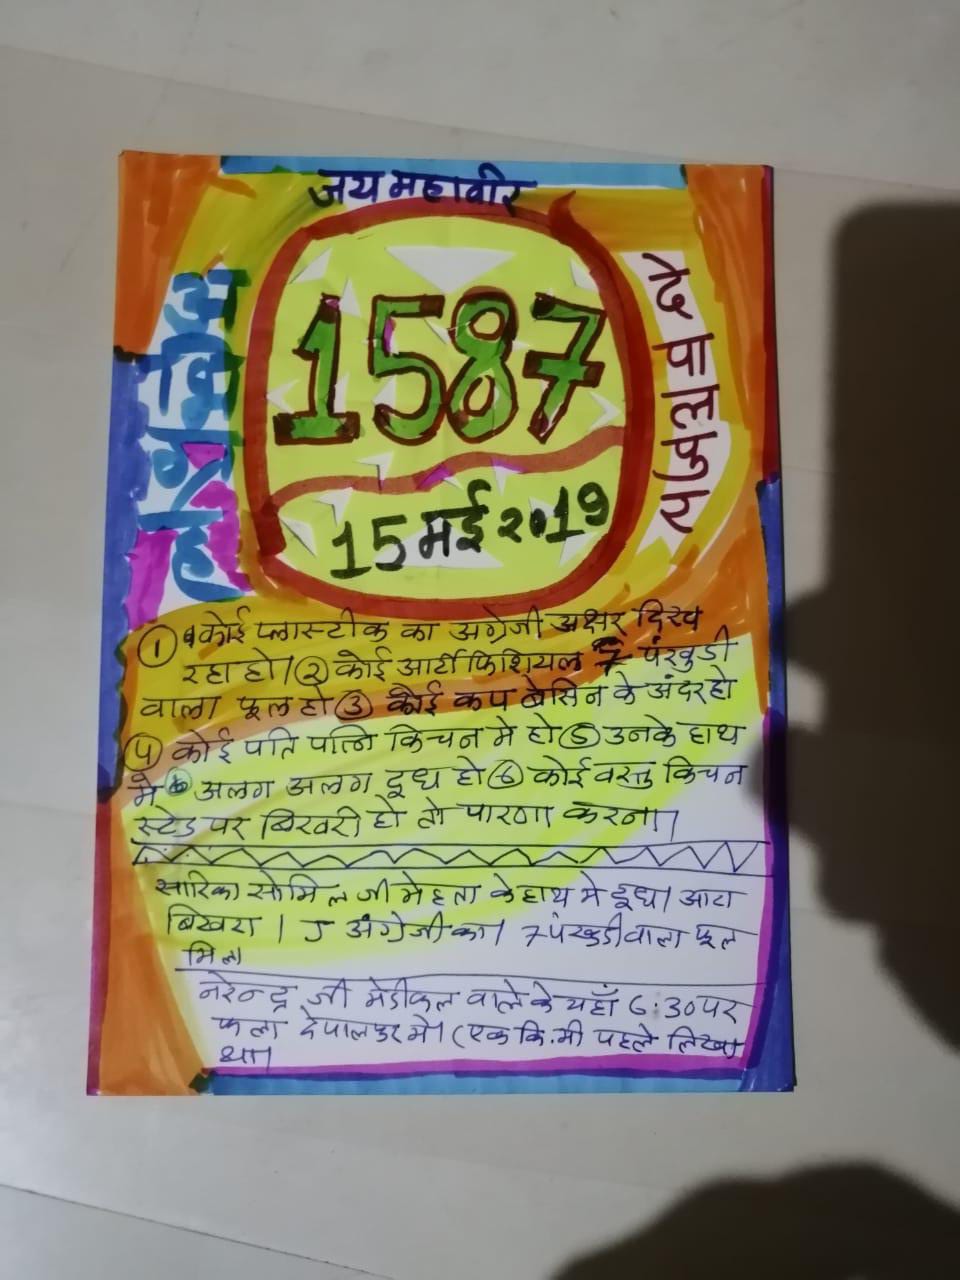 जय महावीर
1587
15 मई २०19
① कोई प्लास्टीक का अंग्रेजी अक्षर दिख
रहा हो। ② कोई आर्टीफिशियल 7 पंखुडी
वाला फूल हो ③ कोई कप बेसिन के अंदर हो
④ कोई पति पत्नि किचन मे हो ⑤ उनके हाथ
मे अलग अलग दूध हो ⑥ कोई वस्तु किचन
स्टेड पर बिखरी हो तो पारणा करना।
सारिका सोमिल जी मेहता के हाथ मे दूध। आटा
बिखरा। J अंग्रेजी का। 7 पंखुडी वाला फूल
मिला
नरेन्द्र जी मेडीकल वाले के यहाँ 6:30 पर
फला देपालपुर मे। (एक कि.मी पहले लिखा
था।